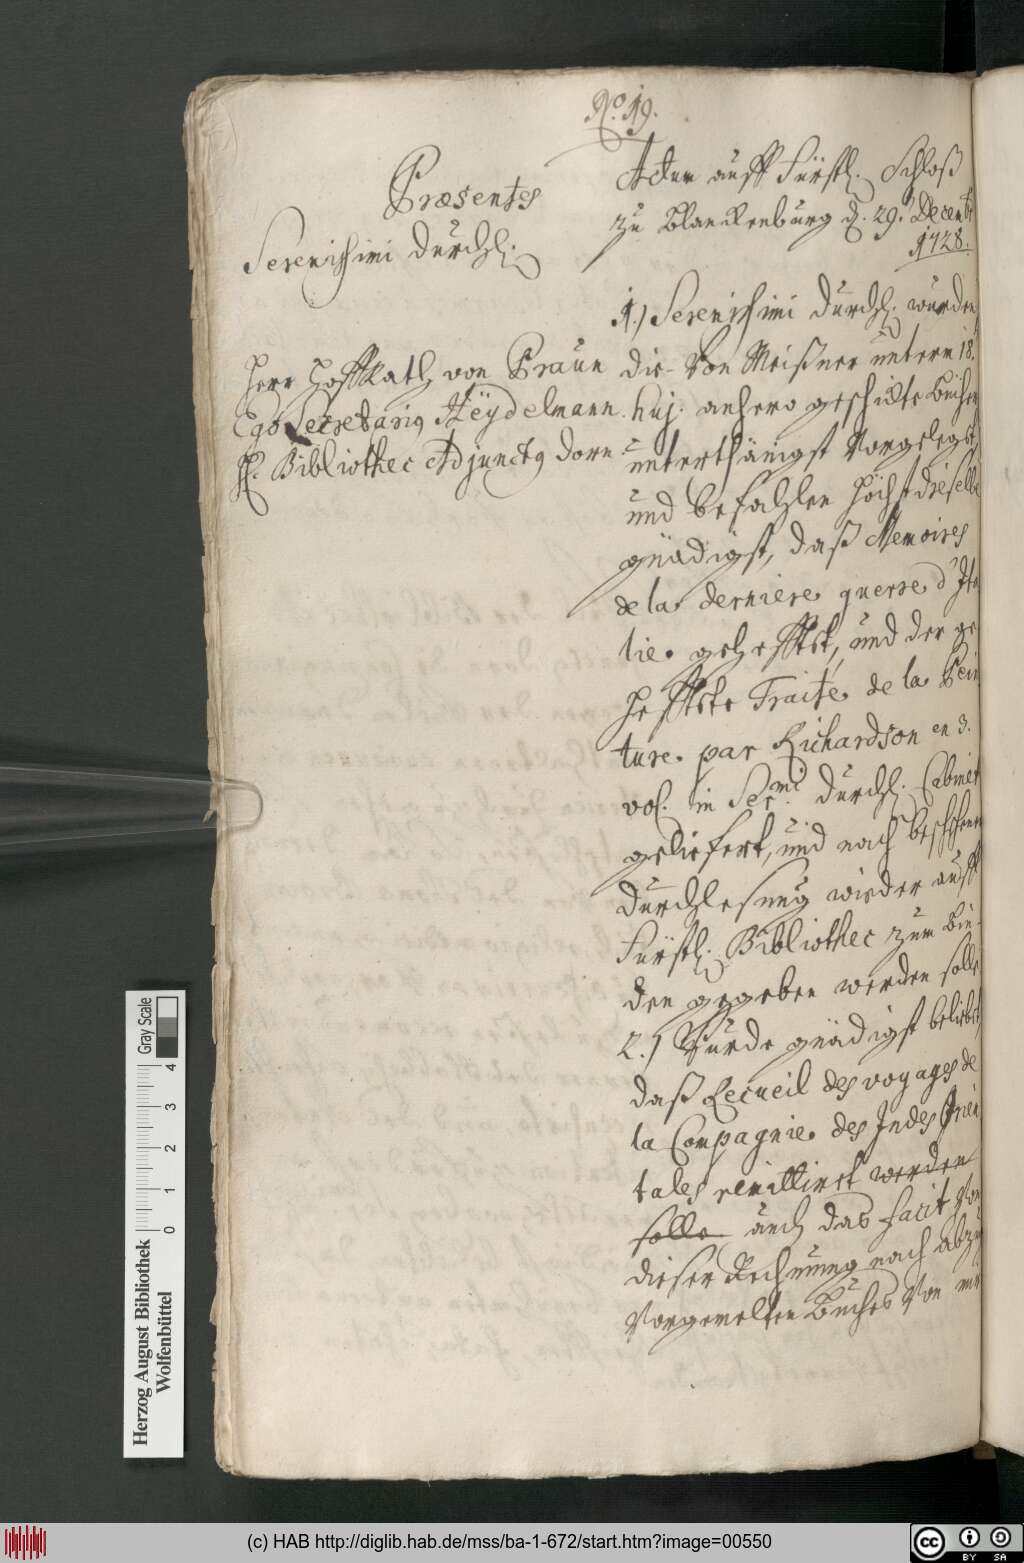 No. 19.
Præsentes
Serenissimi Durchl.
Herr HoffRath von Praun
Ego Secretarius Heÿdelmann.
H. Bibliothec Adjunctus Dorn.
Actum auff Fürstl. Schloß
zu Blanckenburg d. 29. Decembr
1728.
1.) Serenissimi Durchl. wurden
die von Meißner unterm 18.
huj. anhero geschickte Bücher
unterthänigst vorgelegt,
und befahlen Höchstdieselbe
gnädigst, daß Memoires
de la derniere guerre d'Ita
lie. gehefftet, und der ge
heffte Traité de la Pein
ture. par Richardson en 3.
vol. in Sermi. Durchl. Cabinet
geliefert, und nach beschehener
Durchlesung wieder auff
Fürstl. Bibliothec zum bin-
den gegeben werden solle
2.) Wurde gnädigst beliebt,
daß Recueil des voyages de
la Compagnie. des Indes Orien
tales remittiret werden
solle auch das facit von
dieser Rechnung nach abzug
vorgemelten Buches von mir
Herzog August Bibliothek
Wolfenbüttel
0 1 2 3 4
Gray Scale
(c) HAB http://diglib.hab.de/mss/ba-1-672/start.htm?image=00550
CC BY SA